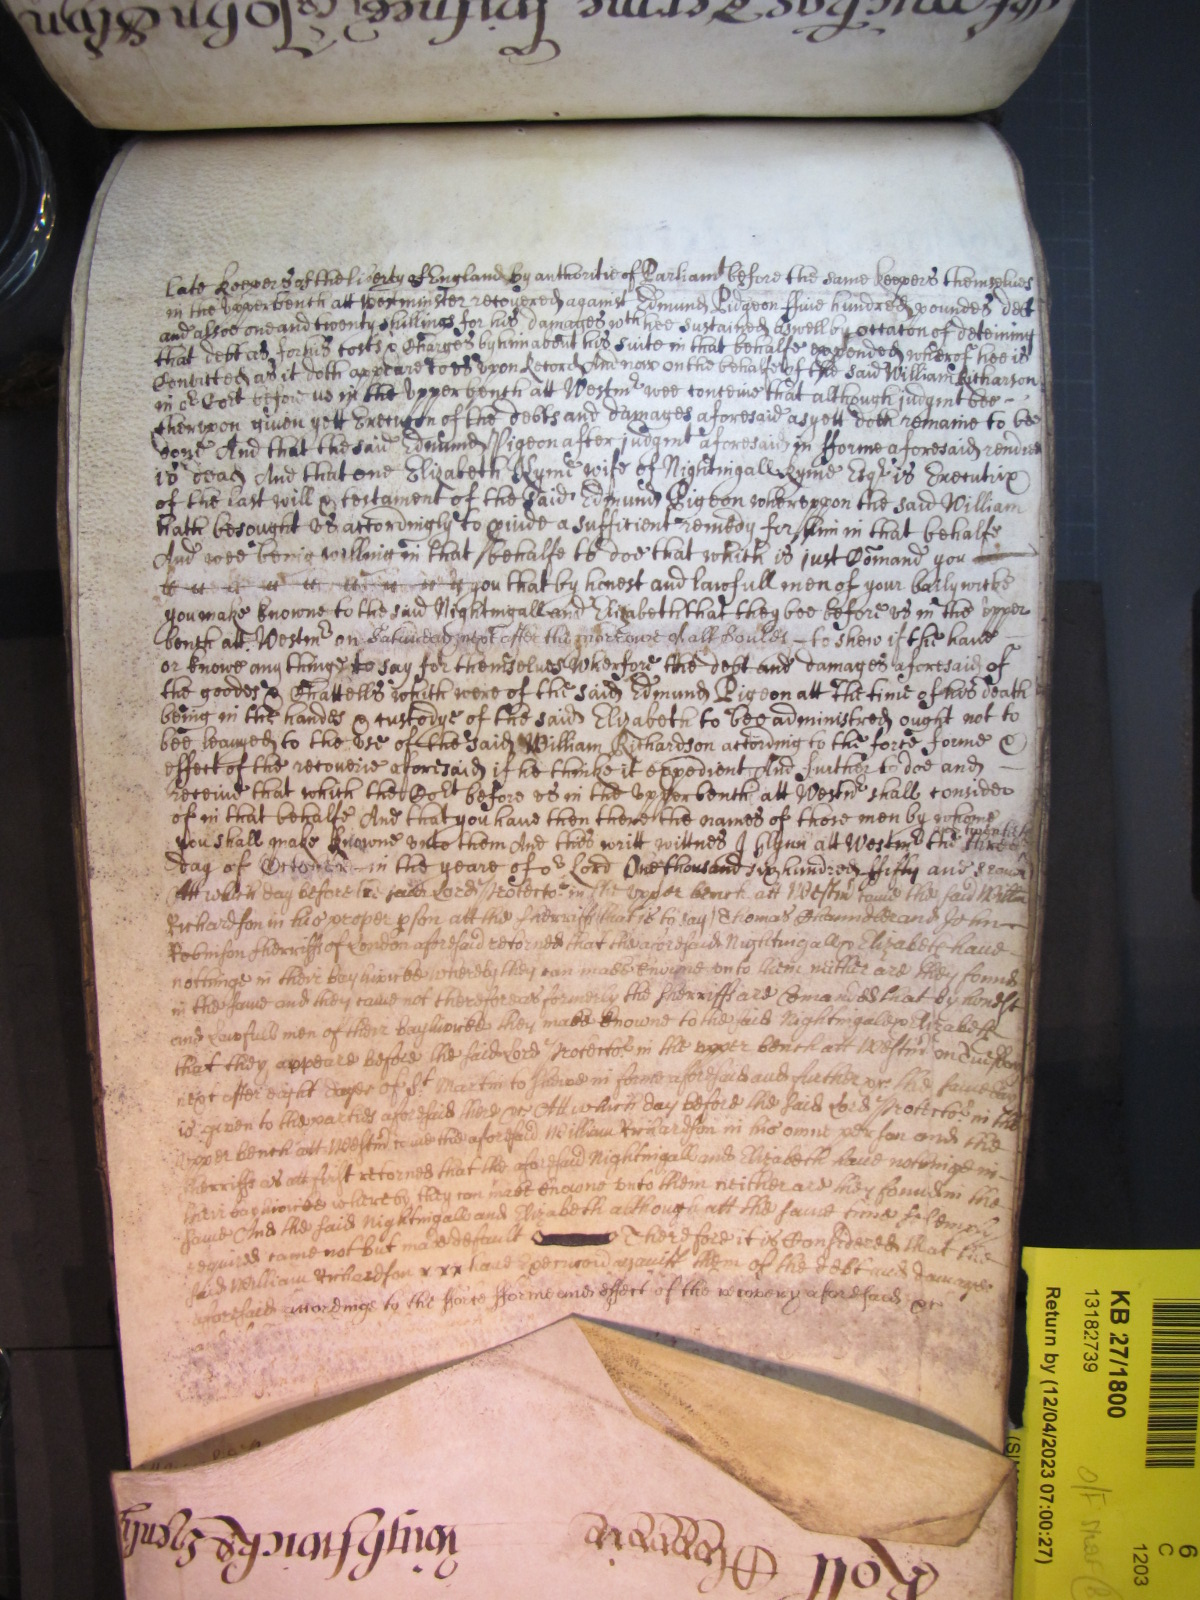 Late Keepers of the liberty of England by authoritie of Parliamt before the same keepers themselves
in the upper bench att Westminster recovered against Edmund Pidgeon ffive hundred pounds debt
and alsoe one and twenty shillings for his damages wch hee sustained aswell by occacon of deteining
that debt as for his costs & Charges by him about his suite in that behalfe expended wherof hee is
Convicted as it doth appeare to us upon Record And now on the behalfe of the said William Richarson
in or Cort before us in the Upper bench att Westmr wee conceive that although judgmt bee
therupon given yett Execucon of the debts and damages aforesaid as yett doth remaine to be
done And that the said Edmund Pigeon after judgmt aforesaid in fforme aforesaid rendred
is dead And that one Elizabeth Kyme wife of Nightingall Kyme Esqr is Executrix
of the last will & testament of the said Edmund Pigeon whereupon the said William
hath besought us accordingly to pvide a sufficient remedy for him in that behalfe
And wee being willing in that behalfe to doe that which is just Comand you
you that by honest and lawfull men of your baliywicke
you make knowne to the said Nightingall and Elizabeth that they bee before us in the upper
bench att Westmr on Saturday next after the morrowe of all Soules to shew if the have
or knowe any thinge to say for themselves wherfore the debt and damages aforesaid of
the goodes & Chattells which were of the said Edmund Pigeon att the time of his death
being in the handes & custodye of the said Elizabeth to bee administred ought not to
bee leavyed to the use of the said William Richardson according to the force forme &
effect of the recoverie aforesaid if he thinke it expedient And further to doe and
receive that which the Cort before us in the upper bench att Westmr shall consider
of in that behalfe And that you have then there the names of those men by whome
you shall make knowne unto them And this writt wittnes J Glynn att Westmr the
day of October in the yeare of or Lord One thousand six hundred ffifty and seaven
Att which day before the said Lord Protector in the upper bench att Westmr came the said Willm
Richardson in his proper pson att the sherriffs that is to say Thomas and John
Robinson sherriffs of London aforesaid retorned that the aforesaid Nightingall & Elizabeth have
nothinge in their bayliwicke whereby they can make knowne unto them neither are they found
in the same and they came not therefore as formerly the sherriffs are Comanded that by honest
and lawfull men of their bayliwicke they make knowne to the said Nightingale & Elizabeth
that they appeare before the said Lord Protector in the upper bench att Westmr on Tuesday
next after eight dayes of St Martin to shewe in forme aforesaid and further &c the same day
is given to the parties aforesaid there &c Att which day before the said Lord Protector in the
upper bench att Westmr came the aforesaid William Richardson in his owne person and the
sherriffs as att first retorned that the aforesaid Nightingall and Elizabeth have nothinge in
their bayliwicke whereby they can make knowne unto them neither are they found in the
same And the said Nightingall and Elizabeth although att the same time solempnly
required came not but made default Therefore it is Considered that the
said William Richardson x x x have Execucon against them of the debt and damages
aforesaid accordinge to the force fforme and effect of the recovery aforesaid &c
Roll
KB 27/1800
13182739
Return by (12/04/2023 07:00:27)
6
C
1203